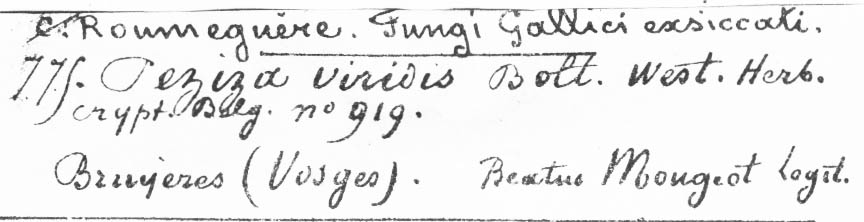 C. Roumeguère. Fungi Gallici exsiccati.
775. Peziza viridis Bolt. West. Herb.
crypt. Belg. no 919.
Bruyères (Vosges). Beatus Mougeot legit.